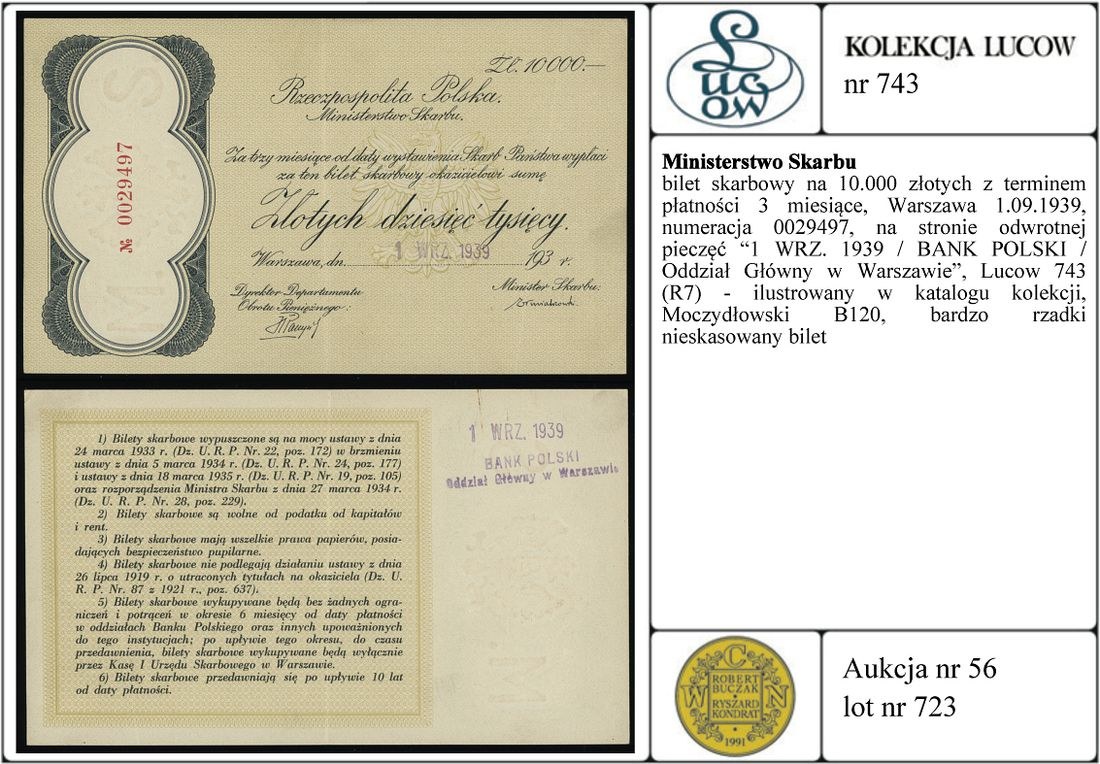 Zł. 10000.—
Rzeczpospolita Polska.
Ministerstwo Skarbu.
Za trzy miesiące od daty wystawienia Skarb Państwa wypłaci
za ten bilet skarbowy okazicielowi sumę
Złotych dziesięć tysięcy.
Warszawa, dn. 1 WRZ. 1939 193 r.
Dyrektor Departamentu
Obrotu Pieniężnego:
Minister Skarbu:
№ 0029497
1) Bilety skarbowe wypuszczone są na mocy ustawy z dnia
24 marca 1933 r. (Dz. U. R. P. Nr. 22, poz. 172) w brzmieniu
ustawy z dnia 5 marca 1934 r. (Dz. U. R. P. Nr. 24, poz. 177)
i ustawy z dnia 18 marca 1935 r. (Dz. U. R. P. Nr. 19, poz. 105)
oraz rozporządzenia Ministra Skarbu z dnia 27 marca 1934 r.
(Dz. U. R. P. Nr. 28, poz. 229).
2) Bilety skarbowe są wolne od podatku od kapitałów
i rent.
3) Bilety skarbowe mają wszelkie prawa papierów, posia-
dających bezpieczeństwo pupilarne.
4) Bilety skarbowe nie podlegają działaniu ustawy z dnia
26 lipca 1919 r. o utraconych tytułach na okaziciela (Dz. U.
R. P. Nr. 87 z 1921 r., poz. 637).
5) Bilety skarbowe wykupywane będą bez żadnych ogra-
niczeń i potrąceń w okresie 6 miesięcy od daty płatności
w oddziałach Banku Polskiego oraz innych upoważnionych
do tego instytucjach; po upływie tego okresu, do czasu
przedawnienia, bilety skarbowe wykupywane będą wyłącznie
przez Kasę I Urzędu Skarbowego w Warszawie.
6) Bilety skarbowe przedawniają się po upływie 10 lat
od daty płatności.
1 WRZ. 1939
BANK POLSKI
Oddział Główny w Warszawie
LUCOW
KOLEKCJA LUCOW
nr 743
Ministerstwo Skarbu
bilet skarbowy na 10.000 złotych z terminem
płatności 3 miesiące, Warszawa 1.09.1939,
numeracja 0029497, na stronie odwrotnej
pieczęć “1 WRZ. 1939 / BANK POLSKI /
Oddział Główny w Warszawie”, Lucow 743
(R7) - ilustrowany w katalogu kolekcji,
Moczydłowski B120, bardzo rzadki
nieskasowany bilet
WCN
ROBERT
BUCZAK
RYSZARD
KONDRAT
1991
Aukcja nr 56
lot nr 723